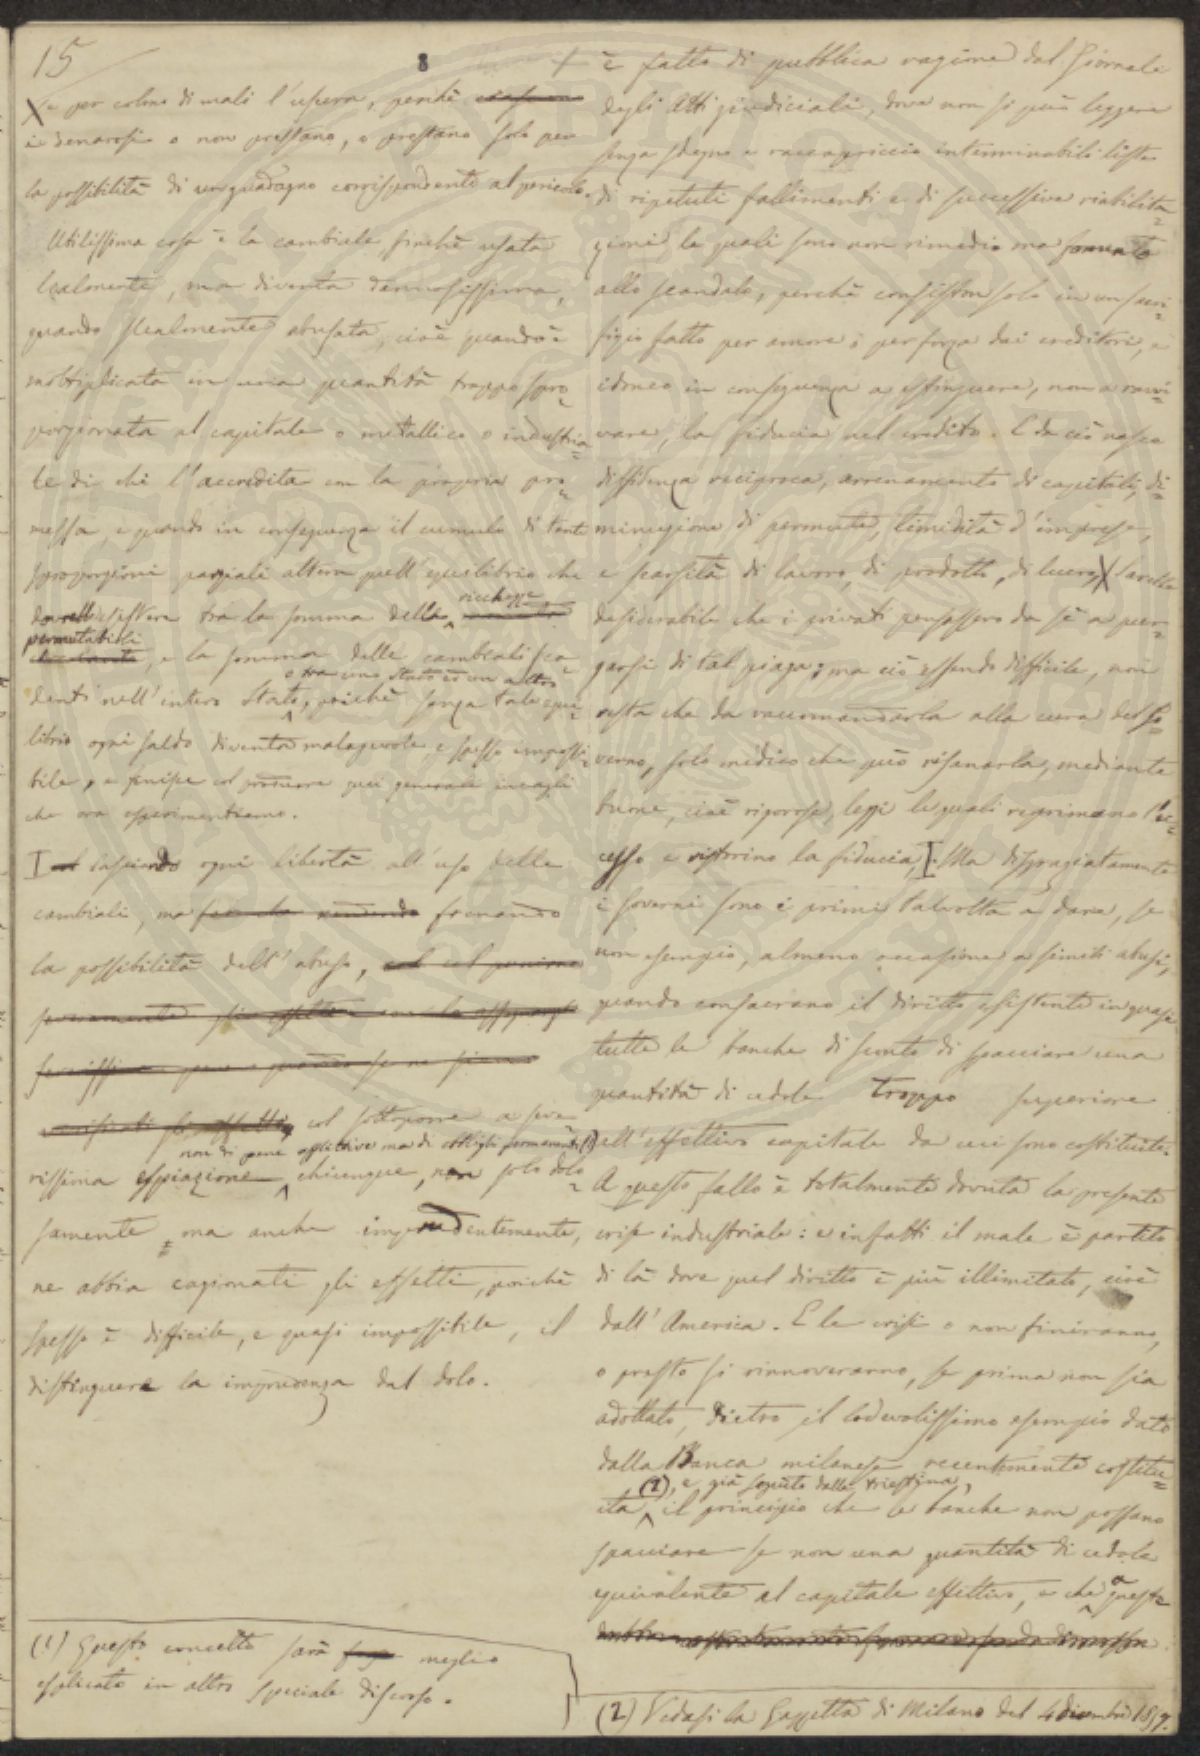 15
8
X e per colmo di mali l'usura, perchè
i denarosi o non prestano, o prestano solo per
la possibilità di un guadagno corrispondente al pericolo.
Utilissima cosa è la cambiale finchè usata
lealmente, ma diventa dannosissima,
quando slealmente abusata, cioè quando è
moltiplicata in una quantità troppo spro=
porzionata al capitale o metallico o industria=
le di chi l'accredita con la propria pro=
messa, e quando in conseguenza il cumulo di tante
sproporzioni parziali altera quell'equilibrio che
dovrebbe esistere tra la somma delle ricchezze
permutabili, e la somma delle cambiali sca=
denti nell'intero Stato, o tra uno Stato ed un altro, poichè senza tale equi=
librio ogni saldo diventa malagevole e spesso impossi=
bile, e finisce col produrre quei generali incagli
che ora esperimentiamo.
I lasciando ogni libertà all'uso delle
cambiali, ma frenando
la possibilità dell'abuso,
col sottoporre a seve=
rissima espiazione, non di pene afflittive ma di obblighi permanenti (1) chiunque, non solo dolo=
samente, ma anche imprudentemente,
ne abbia cagionati gli effetti, poichè
spesso è difficile, e quasi impossibile, il
distinguere la imprudenza dal dolo.
(1) Questo concetto sarà meglio
esplicato in altro speciale discorso.
+ è fatto di pubblica ragione dal Giornale
degli Atti giudiciali, dove non si può leggere
senza sdegno e raccapriccio interminabili liste
di ripetuti fallimenti e di successive riabilita=
zioni, le quali sono non rimedio ma fomento
allo scandalo, perchè consistono solo in un sacri=
fizio fatto per amore o per forza dai creditori, e
idoneo in conseguenza a estinguere, non a ravvi=
vare, la fiducia nel credito. E da ciò nasce
diffidenza reciproca, arrenamento di capitali, di=
minuzione di permute, timidità d'imprese,
e scarsità di lavoro, di prodotto, di lucro X Sarebbe
desiderabile che i privati pensassero da sè a pur=
garsi di tal piaga; ma ciò essendo difficile, non
resta che da raccomandarla alla cura del Go=
verno, solo medico che può risanarla, mediante
buone, cioè rigorose, leggi le quali reprimano l'ec=
cesso e ristorino la fiducia, I. Ma disgraziatamente
i Governi sono i primi talvolta a dare, se
non esempio, almeno occasione a simili abusi,
quando consacrano il diritto esistente in quasi
tutte le banche di sconto di spacciare una
quantità di cedole troppo superiore
all'effettivo capitale da cui sono costituite.
A questo fallo è totalmente dovuta la presente
crise industriale: e infatti il male è partito
di là dove quel diritto è più illimitato, cioè
dall'America. E le crisi o non finiranno,
o presto si rinnoveranno, se prima non sia
adottato, dietro il lodevolissimo esempio dato
dalla Banca milanese recentemente costitu=
ita (2), e già seguito dalla triestina, il principio che le banche non possano
spacciare se non una quantità di cedole
equivalente al capitale effettivo, e che a queste
(2) Vedasi la Gazzetta di Milano del 4 dicembre 1857.